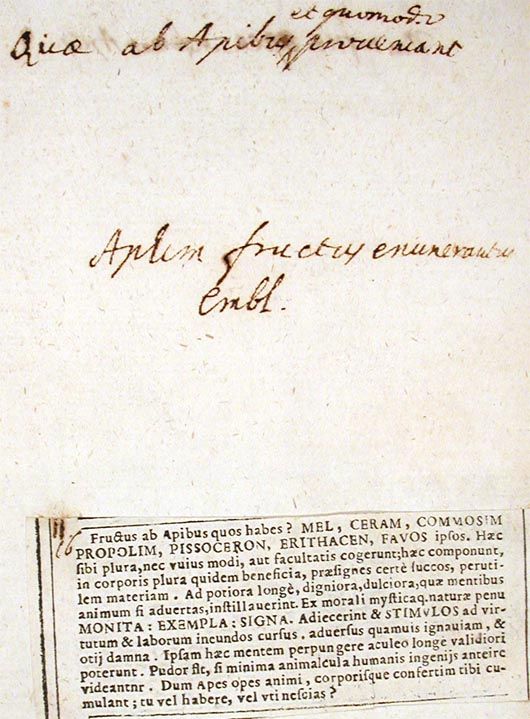 et quomodo
Quæ ab Apibus proveniant
Apum fructus enumerantur
Embl.
16
Fructus ab Apibus quos habes? MEL, CERAM, COMMOSIM
PROPOLIM, PISSOCERON, ERITHACEN, FAVOS ipsos. Hæc
sibi plura, nec vuius modi, aut facultatis cogerunt; hæc componunt,
in corporis plura quidem beneficia, præsignes certè succos, peruti-
lem materiam. Ad potiora longè, digniora, dulciora, quæ mentibus
animum si aduertas, instillauerint. Ex morali mysticaq. naturæ penu
MONITA: EXEMPLA: SIGNA. Adiecerint & STIMVLOS ad vir-
tutum & laborum ineundos cursus. aduersus quamuis ignauiam, &
otij damna. Ipsam hæc mentem perpungere aculeo longè validiori
poterunt. Pudor sit, si minima animalcula humanis ingenijs anteire
videantnr. Dum Apes opes animi, corporisque confertim tibi cu-
mulant; tu vel habere, vel vti nescias?